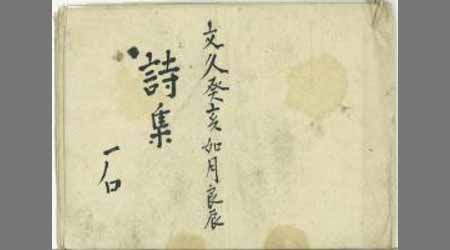 文久癸亥如月良辰
詩集